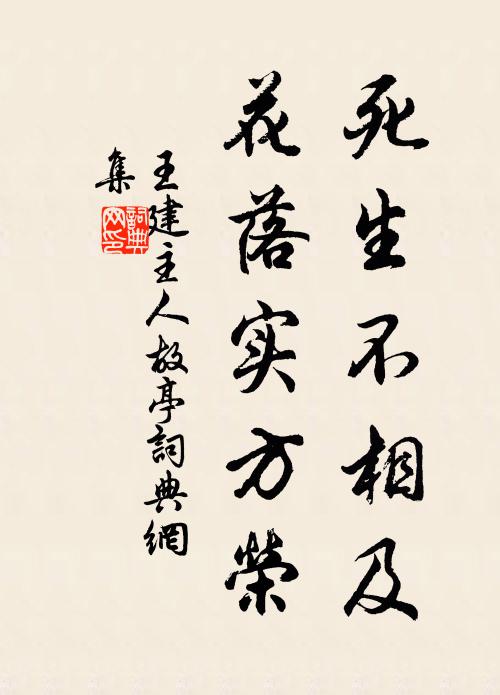 死生不相及
花落实方榮
王建主人故亭詞典網
集
詞典
网印